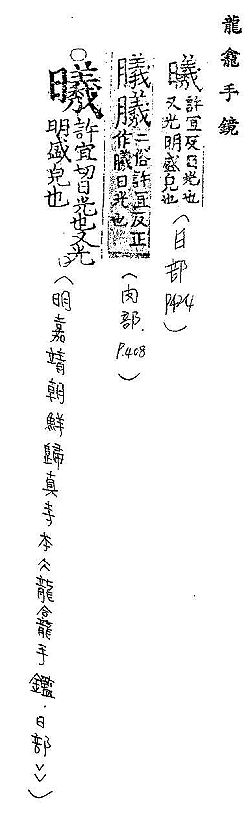 龍龕手鏡
曦許宜反日光也又光明盛皃也（日部P.424）
𦢚𦢚二俗許宜反正作曦日光也（肉部.P.408）
○曦許宜切日光也又光明盛皃也（明嘉靖朝鮮歸真寺本《龍龕手鑑.日部》）